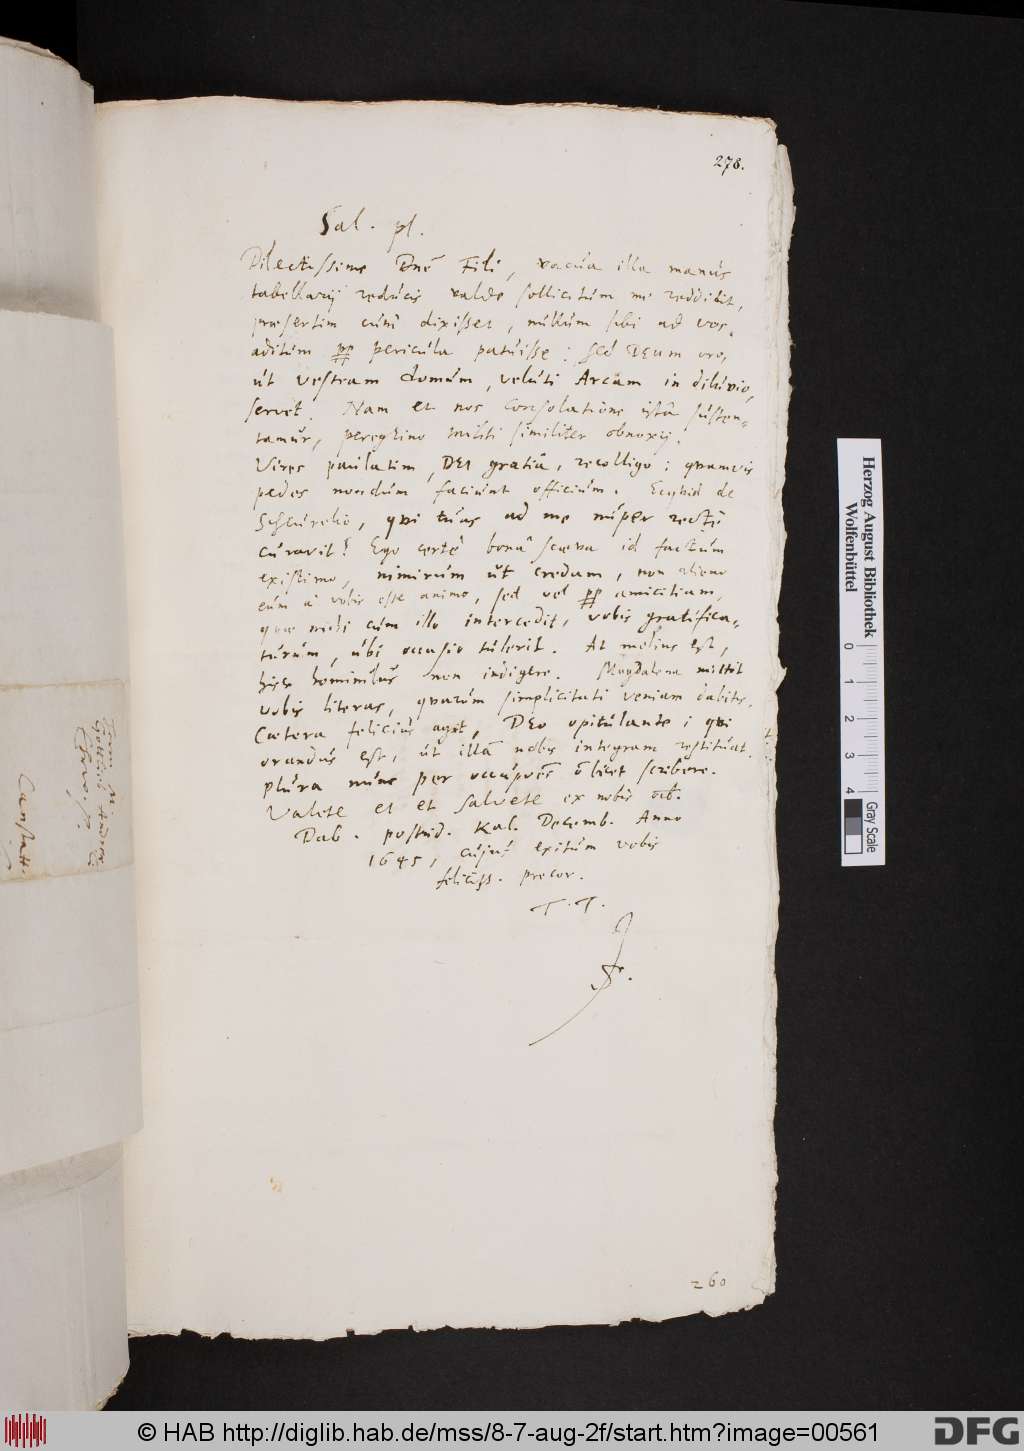 278.
Sal. pl.
Dilectissime Dnē Fili, vacúa illa manús
tabellarij redúcis valde sollicitúm me reddidit,
præsertim cúm dixisset, núllúm sibi ad vos
aditúm pp pericúla patúisse: sed DEum oro,
út vestram domúm, velúti Arcam in dilúvio,
servet. Nam et nos consolatione istâ susten-
tamúr, peregrino militi similiter obnoxij.
Vires paúlatim, DEI gratiâ, recolligo: qvamvis
pedes nondúm faciúnt officiúm. Ecqvid de
qvi túas ad me núper rectè
cúravit? Ego certè bonâ scæva id factúm
existimo, nimirúm út credam, non alieno
eúm à vobis esse animo, sed vel pp amicitiam,
qvæ mihi cúm illo intercedit, vobis gratifica-
túrúm, úbi occasio túlerit. At meliús est,
hisce hominibús non indigere. Magdalena mittit
vobis literas, qvarúm simplicitati veniam dabitis.
Cætera feliciús agit, DEo opitúlante; qvi
orandús est, út illâ nobis integram restitúat.
plúra núnc per occúpōēs ō licet scribere.
Valete et et salvete ex nobis oīb.
Dab. postrid. Kal. Decemb. Anno
1645, cújús exitúm vobis
feliciss. precor.
T. T.
260
Cantstatt.
Herzog August Bibliothek
Wolfenbüttel
0 1 2 3 4
Gray Scale
© HAB http://diglib.hab.de/mss/8-7-aug-2f/start.htm?image=00561
DFG